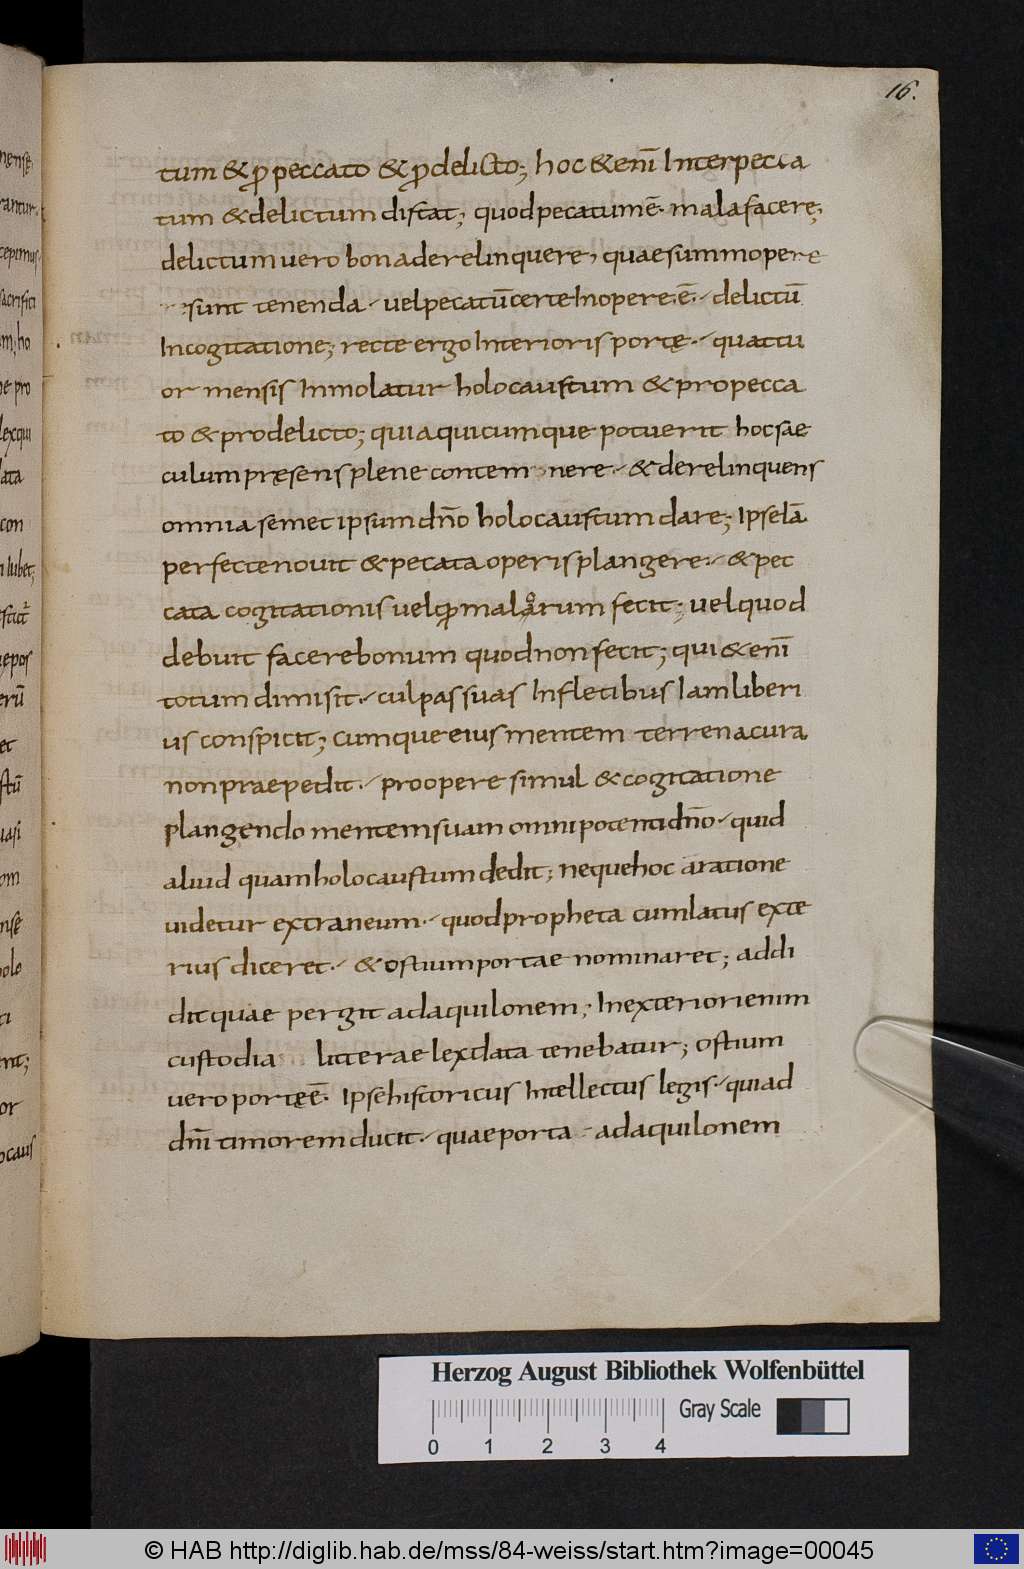 16.
tum & ꝓ peccato & ꝓ delicto; hoc & enī Inter pecca
tum & delictum distat; quod pecatum ē· mala facere;
delictum uero bona derelinquere, quae summopere
sunt tenenda·/ uel pecatū certe In opere ē·/ delictū
In cogitatione; recte ergo Interioris portę·/ quattu
or mensis Inmolatur holocaustum & pro pecca
to & pro delicto; quia quicumque potuerit hoc sae
culum pręsens plene contem nere·/ & derelinquens
omnia semet ipsum dn̄o holocaustum dare; Ipse iā
perfecte nouit & pecata operis plangere·/ & pec
cata cogitationis uel ꝓ malarum fecit; uel quod
debuit facere bonum quod non fecit; qui & enī
totum dimisit·/ culpas suas In fletibus Iam liberi
us conspicit; cumque eius mentem terrena cura
non praepedit·/ pro opere simul & cogitatione
plangendo mentem suam omnipotenti dn̄o·/ quid
aliud quam holocaustum dedit; neque hoc a ratione
uidetur extraneum·/ quod propheta cum latus exte
rius diceret·/ & ostium portae nominaret; addi
dit quae pergit ad aquilonem; In exteriori enim
custodia litterae lex data tenebatur; ostium
uero portę ē· Ipse historicus Intellectus legis·/ qui ad
dn̄i timorem ducit·/ quae porta·/ ad aquilonem
Herzog August Bibliothek Wolfenbüttel
Gray Scale
0 1 2 3 4
© HAB http://diglib.hab.de/mss/84-weiss/start.htm?image=00045